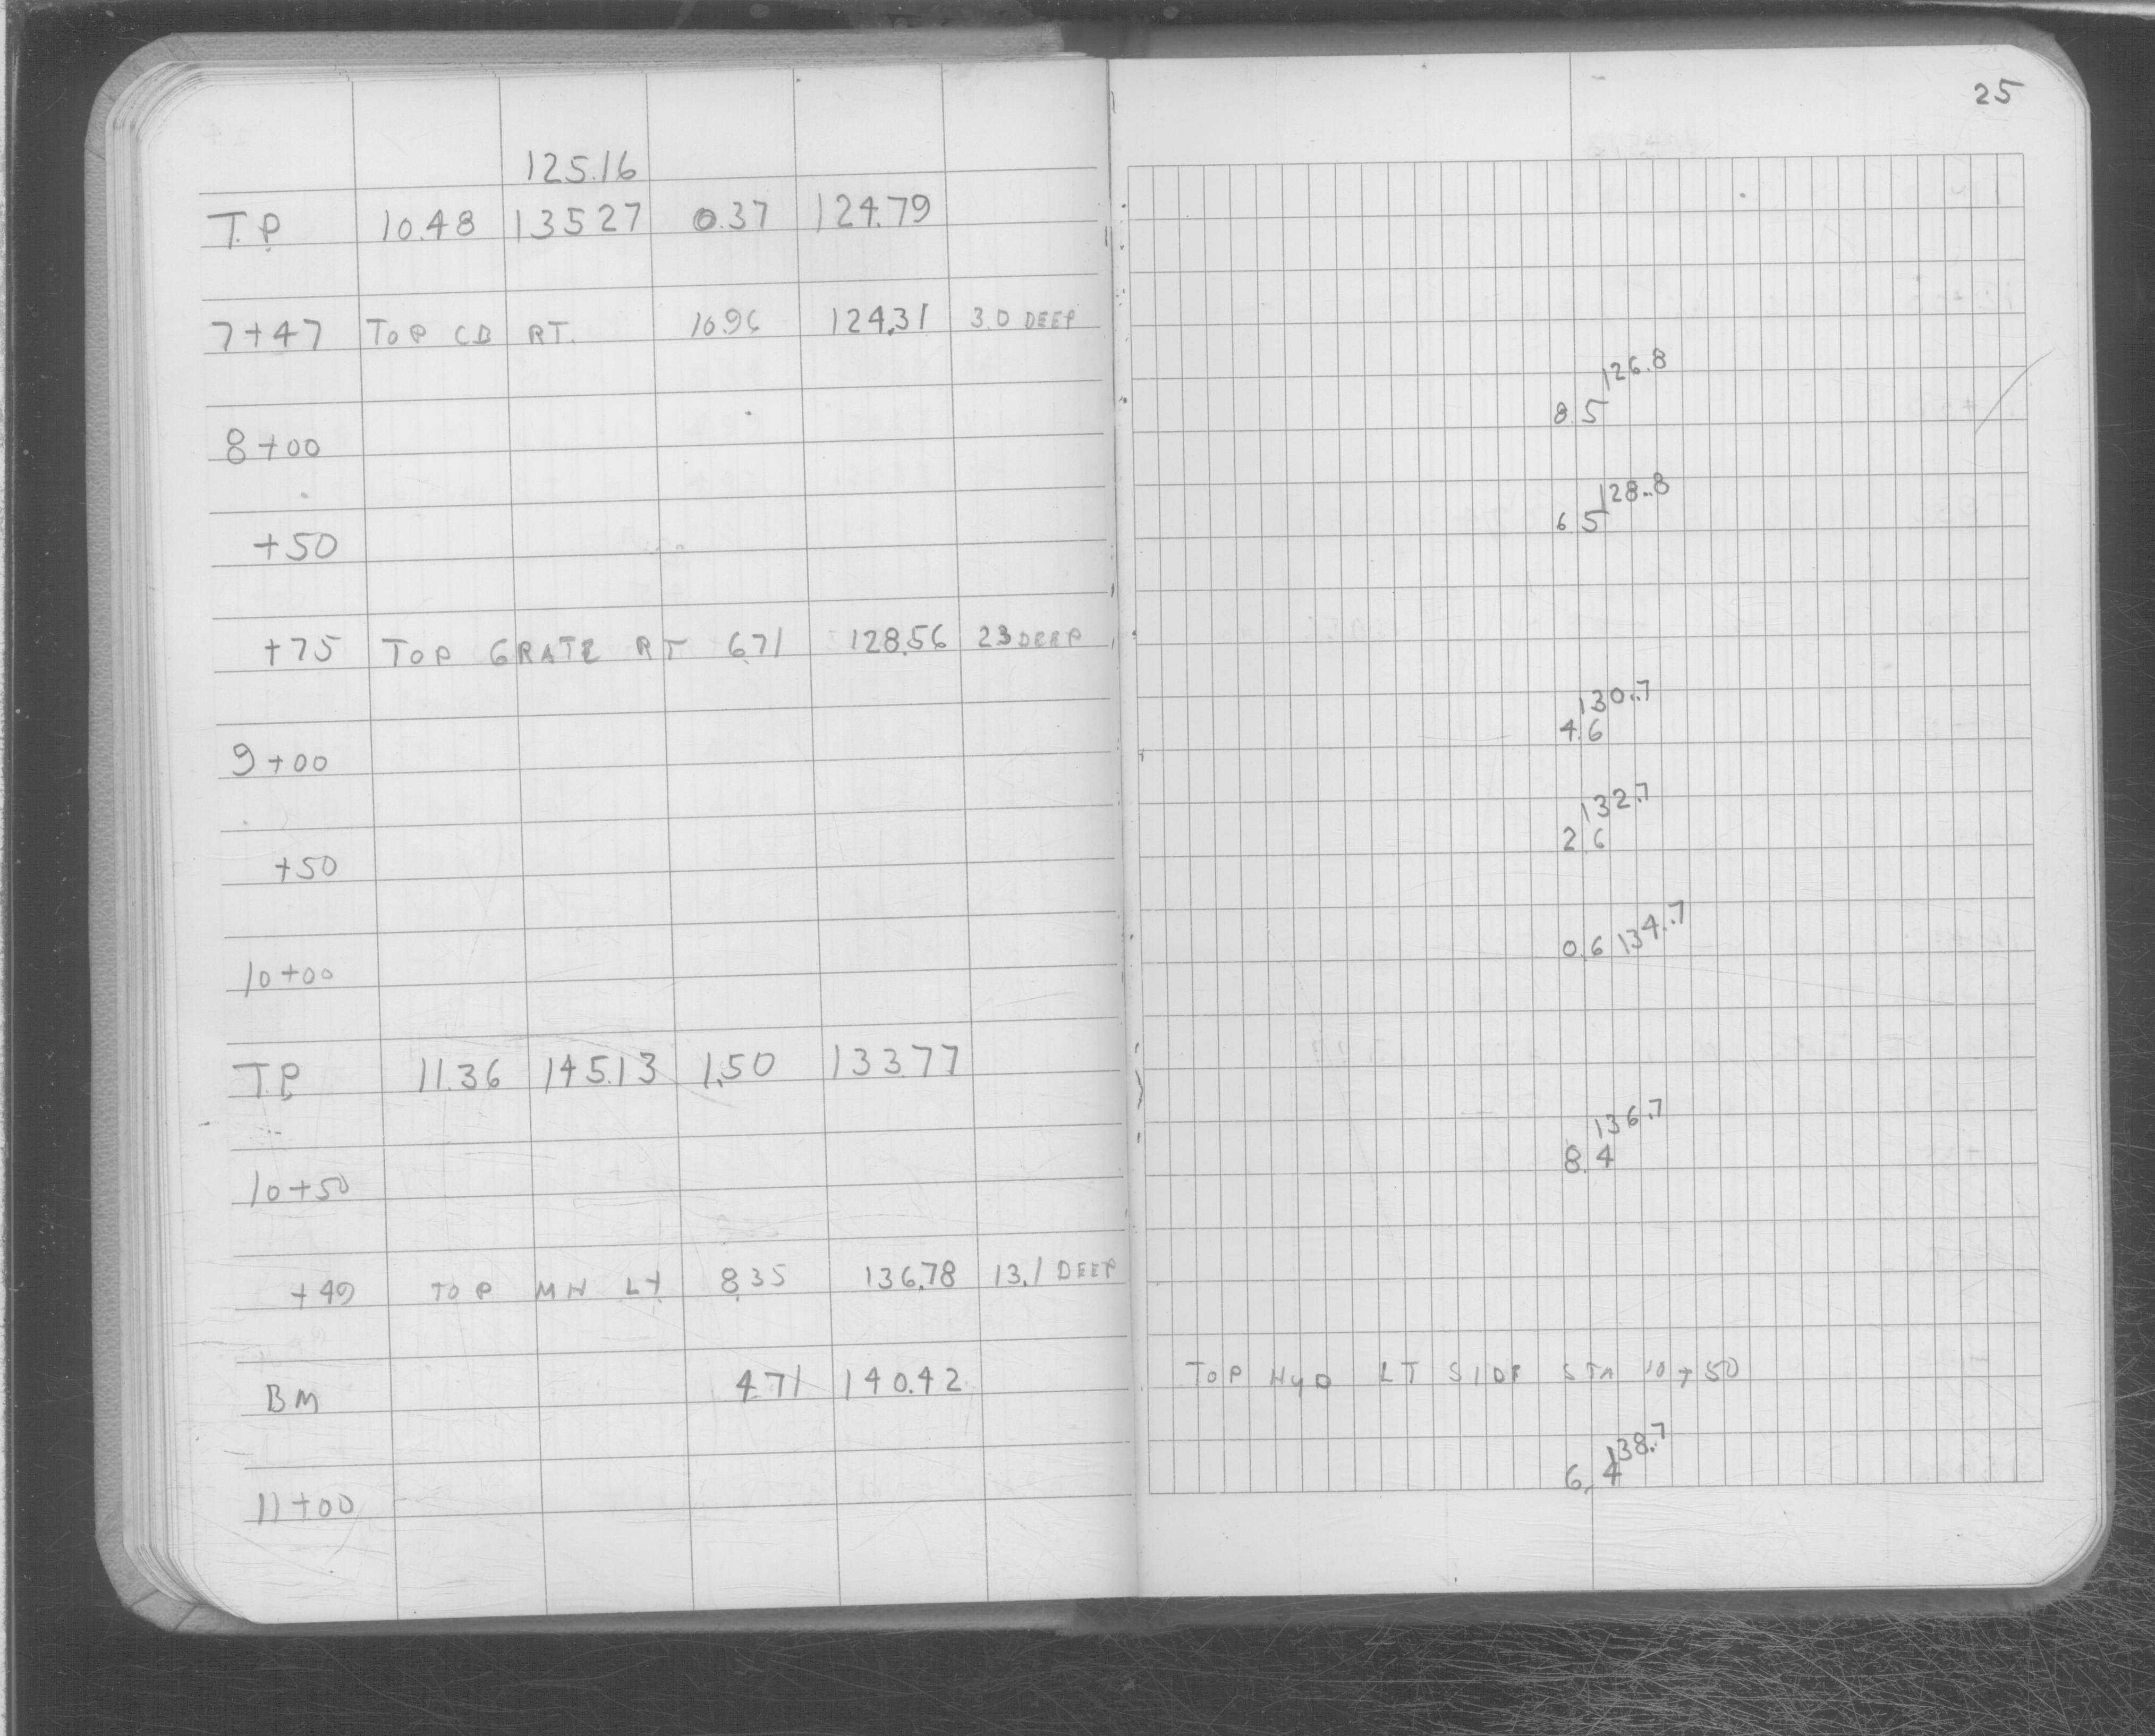 25
125.16
T.P 10.48 135 27 0.37 124.79
7+47 TOP CB RT. 10.96 124.31 3.0 DEEP
126.8
8+00 8.5
128.8
+50 6.5
+75 TOP GRATE RT 6.71 128.56 2.3 DEEP
130.7
9+00 4.6
132.7
+50 2.6
10+00 0.6 134.7
T.P 11.36 145.13 1.50 133.77
136.7
10+50 8.4
+49 TOP MH LT 8.35 136.78 13.1 DEEP
BM 4.71 140.42 TOP HYD LT SIDE STA 10+50
138.7
11+00 6.4